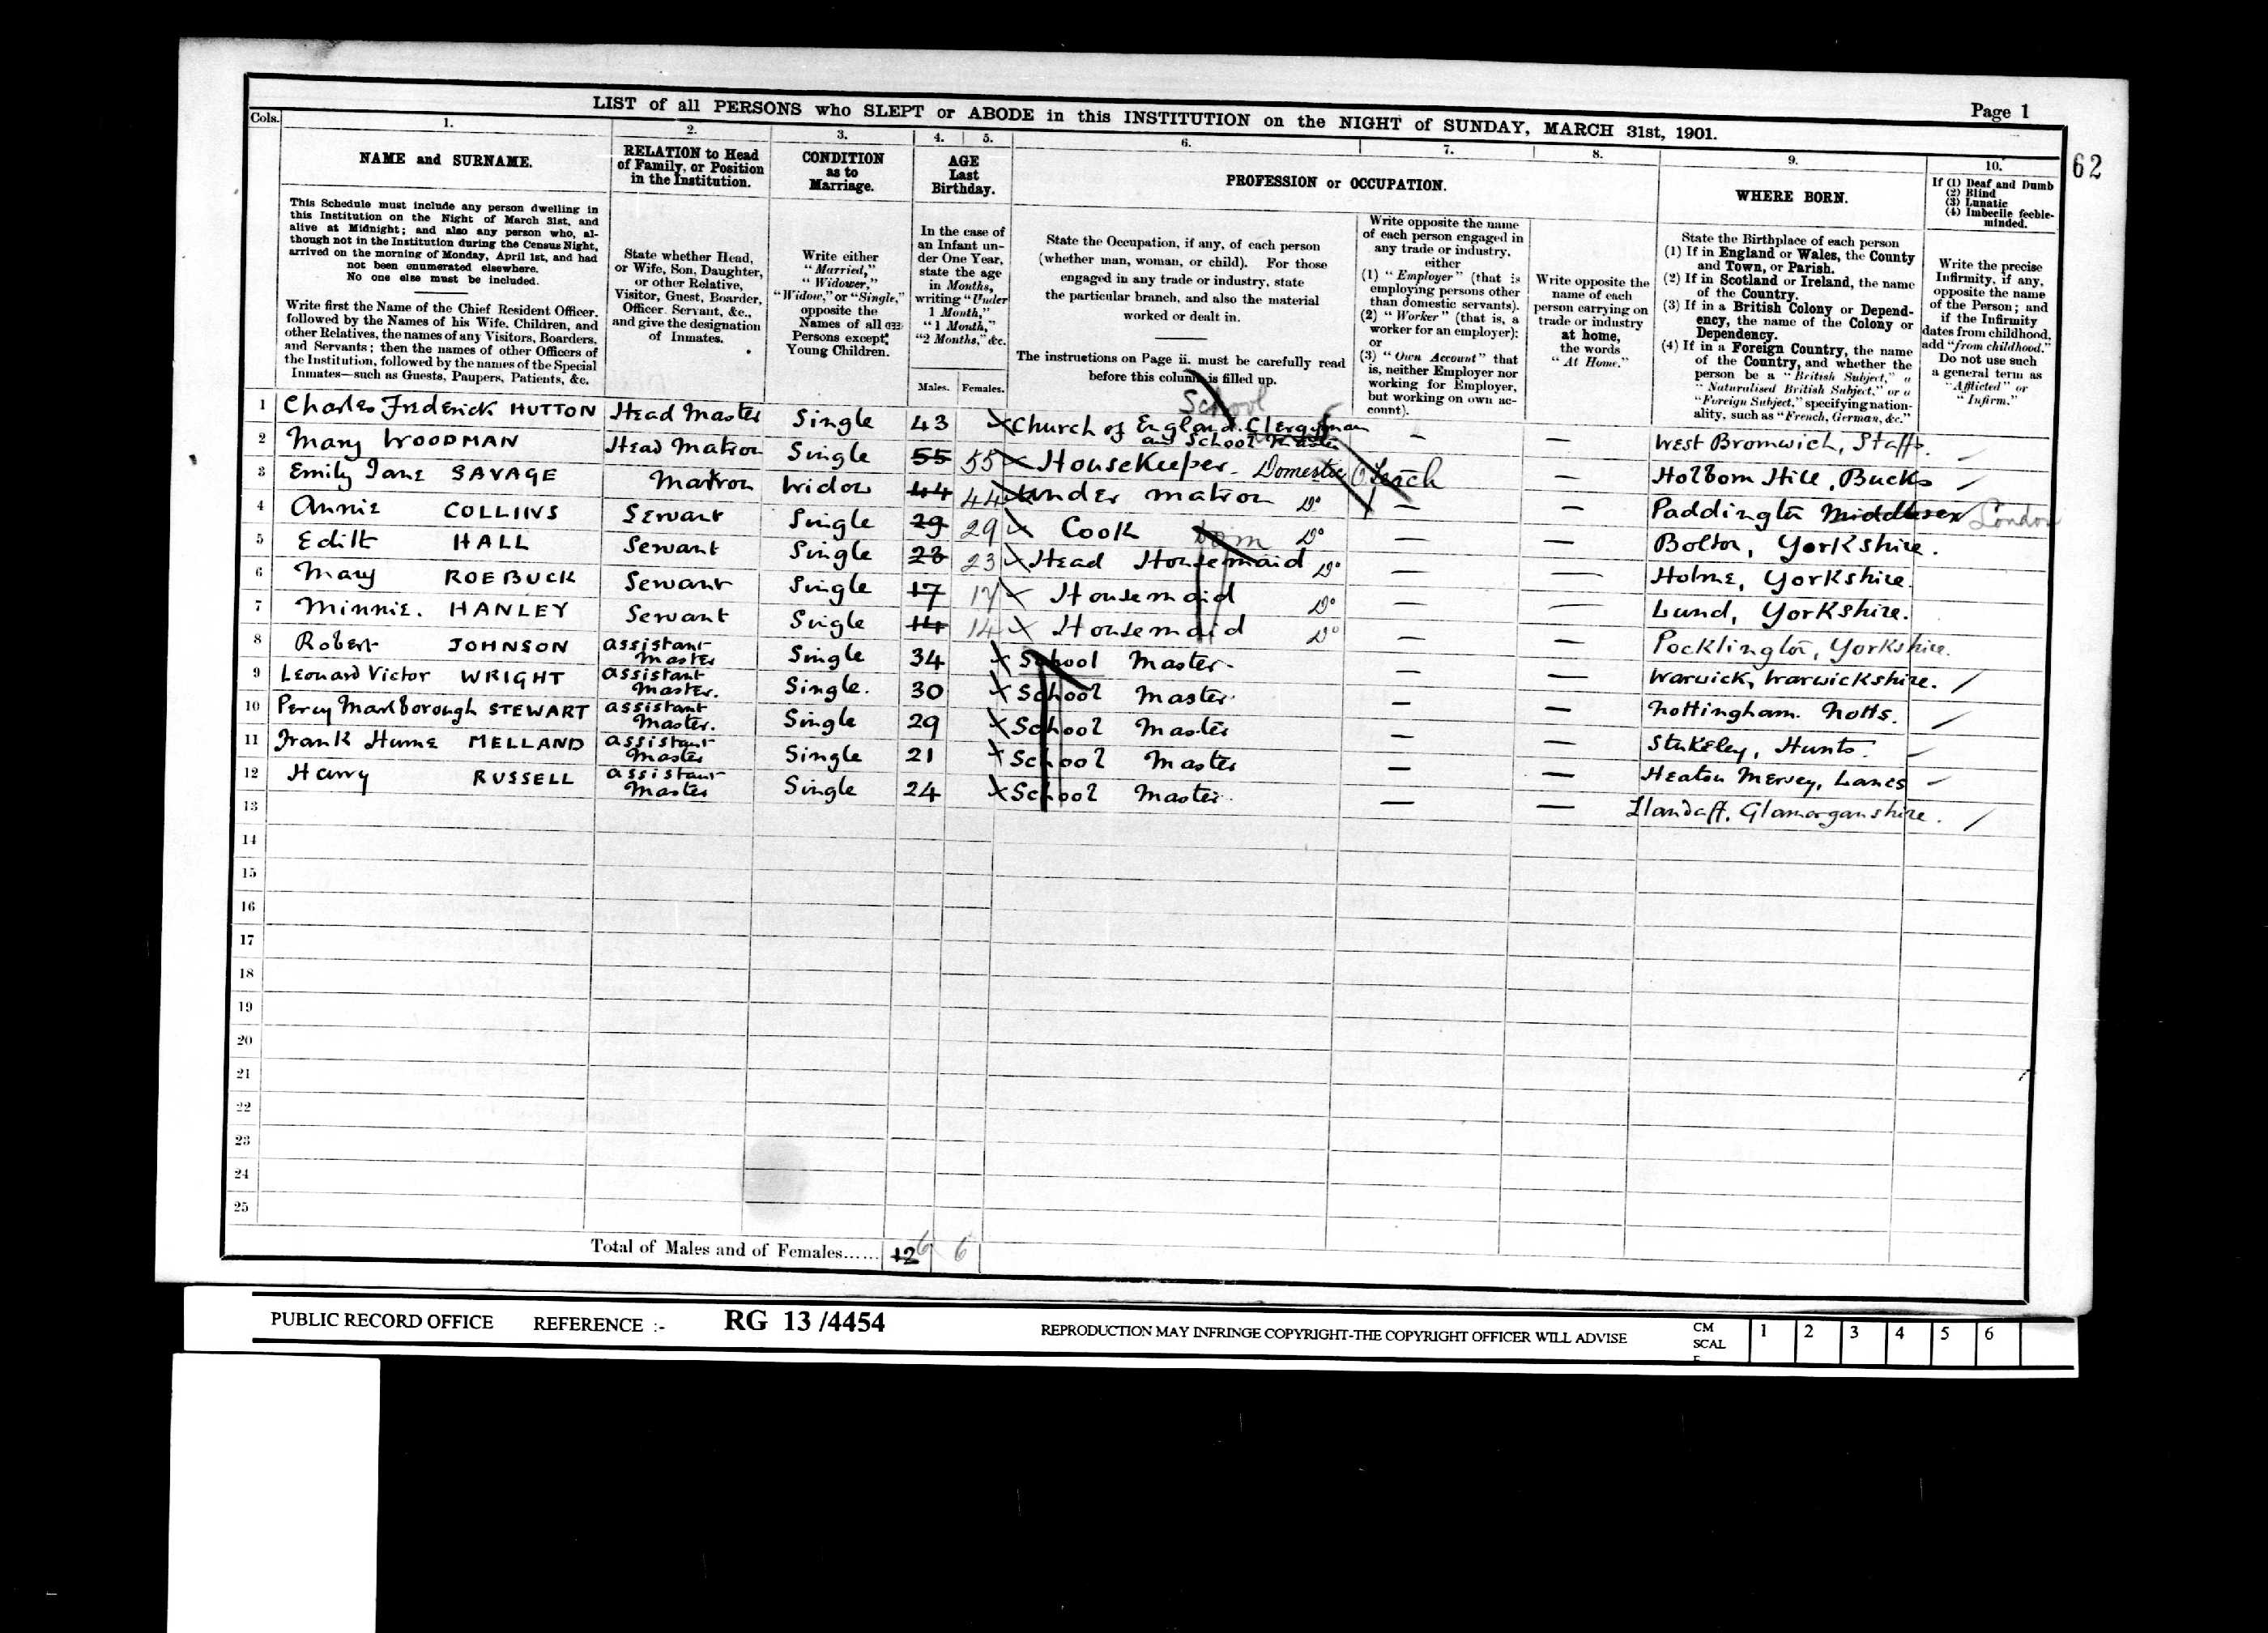 LIST of all PERSONS who SLEPT or ABODE in this INSTITUTION on the NIGHT of SUNDAY, MARCH 31st, 1901.
Page 1
62
Cols.
1.
2.
3.
4.
5.
6.
7.
8.
9.
10.
NAME and SURNAME.
This Schedule must include any person dwelling in
this Institution on the Night of March 31st, and
alive at Midnight; and also any person who, al-
though not in the Institution during the Census Night,
arrived on the morning of Monday, April 1st, and had
not been enumerated elsewhere.
No one else must be included.
Write first the Name of the Chief Resident Officer,
followed by the Names of his Wife, Children, and
other Relatives, the names of any Visitors, Boarders,
and Servants; then the names of other Officers of
the Institution, followed by the names of the Special
Inmates—such as Guests, Paupers, Patients, &c.
RELATION to Head
of Family, or Position
in the Institution.
State whether Head,
or Wife, Son, Daughter,
or other Relative,
Visitor, Guest, Boarder,
Officer, Servant, &c.,
and give the designation
of Inmates.
CONDITION
as to
Marriage.
Write either
"Married,"
"Widower,"
"Widow," or "Single,"
opposite the
Names of all
Persons except
Young Children.
AGE
Last
Birthday.
In the case of
an Infant un-
der One Year,
state the age
in Months,
writing "Under
1 Month,"
"1 Month,"
"2 Months," &c.
Males.
Females.
PROFESSION or OCCUPATION.
State the Occupation, if any, of each person
(whether man, woman, or child). For those
engaged in any trade or industry, state
the particular branch, and also the material
worked or dealt in.
The instructions on Page ii. must be carefully read
before this column is filled up.
Write opposite the name
of each person engaged in
any trade or industry,
either
(1) "Employer" (that is
employing persons other
than domestic servants).
(2) "Worker" (that is, a
worker for an employer);
or
(3) "Own Account" that
is, neither Employer nor
working for Employer,
but working on own ac-
count).
Write opposite the
name of each
person carrying on
trade or industry
at home,
the words
"At Home."
WHERE BORN.
State the Birthplace of each person
(1) If in England or Wales, the County
and Town, or Parish.
(2) If in Scotland or Ireland, the name
of the Country.
(3) If in a British Colony or Depend-
ency, the name of the Colony or
Dependency.
(4) If in a Foreign Country, the name
of the Country, and whether the
person be a "British Subject," a
"Naturalised British Subject," or a
"Foreign Subject," specifying nation-
ality, such as "French, German, &c."
If (1) Deaf and Dumb
(2) Blind
(3) Lunatic
(4) Imbecile feeble-
minded.
Write the precise
Infirmity, if any,
opposite the name
of the Person; and
if the Infirmity
dates from childhood,
add "from childhood."
Do not use such
a general term as
"Afflicted" or
"Infirm."
School
1 Charles Frederick HUTTON Head Master Single 43 Church of England Clergyman and School Master — — West Bromwich, Staffs.
2 Mary WOODMAN Head Matron Single 55 55 Housekeeper. Domestic — Holborn Hill, Bucks
3 Emily Jane SAVAGE Matron Widow 44 44 Under matron Do — — Paddington Middlesex London
4 Annie COLLINS Servant Single 29 29 Cook Dom Do — — Bolton, Yorkshire.
5 Edith HALL Servant Single 23 23 Head Housemaid Do — — Holme, Yorkshire.
6 Mary ROEBUCK Servant Single 17 17 Housemaid Do — — Lund, Yorkshire.
7 Minnie. HANLEY Servant Single 14 14 Housemaid Do — — Pocklington, Yorkshire.
8 Robert JOHNSON assistant Master Single 34 School Master — — Warwick, Warwickshire.
9 Leonard Victor WRIGHT assistant Master. Single. 30 School Master — — Nottingham. Notts.
10 Percy Marlborough STEWART assistant Master. Single 29 School Master — — Stukeley, Hunts.
11 Frank Hume MELLAND assistant Master Single 21 School Master — — Heaton Mersey, Lancs
12 Harry RUSSELL assistant Master Single 24 School Master. — — Llandaff, Glamorganshire.
13
14
15
16
17
18
19
20
21
22
23
24
25
Total of Males and of Females...... 12 6 6
PUBLIC RECORD OFFICE REFERENCE :- RG 13 /4454 REPRODUCTION MAY INFRINGE COPYRIGHT-THE COPYRIGHT OFFICER WILL ADVISE
CM SCALE 1 2 3 4 5 6